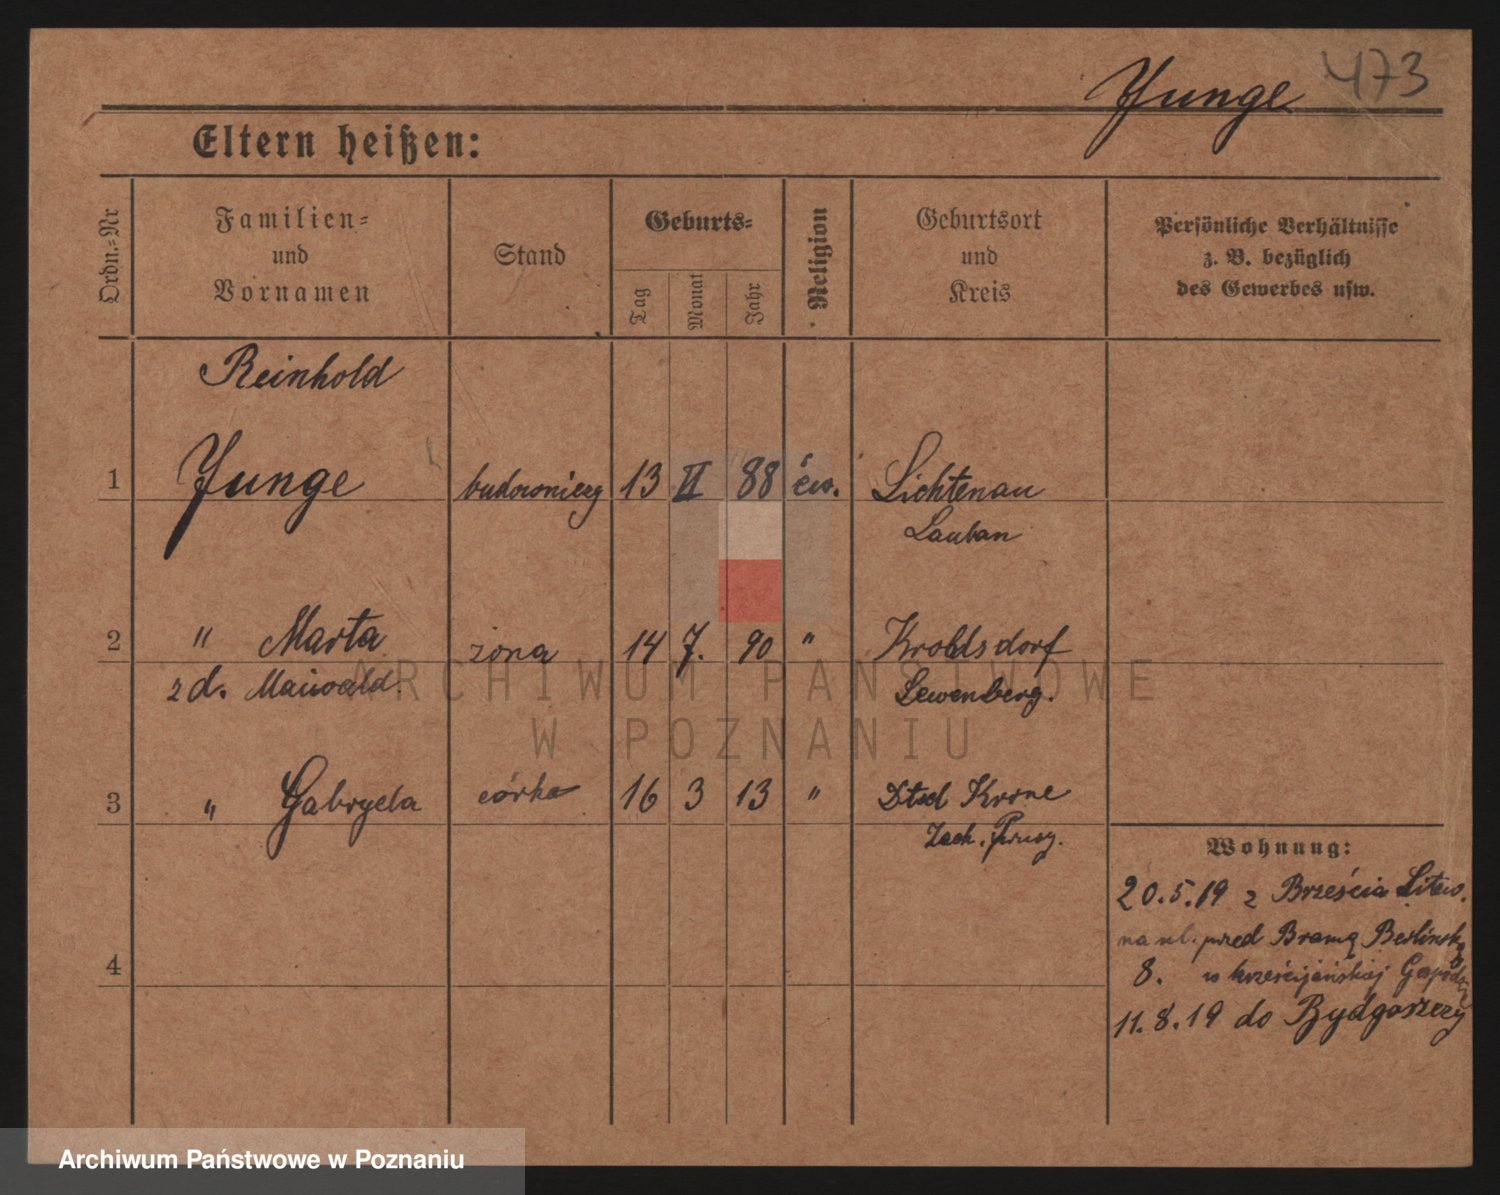 Junge 473
Eltern heißen:
Ordn.=Nr
Familien=
und
Vornamen
Stand
Geburts=
Tag
Monat
Jahr
Religion
Geburtsort
und
Kreis
Persönliche Verhältnisse
z. B. bezüglich
des Gewerbes usw.
Reinhold
1 Junge budowniczy 13 II 88 ew. Lichtenau
Lauban
2 " Marta żona 14 7. 90 " Krobdsdorf
z d. Maiwald. Lewenberg.
3 " Gabryela córka 16 3 13 " Dtsch Krone
Zach. Prusy.
Wohnung:
20.5.19 z Brześcia Litew.
na ul. przed Bramą Berlińską
8. w krześcijańskiej Gospodzie
4
11.8.19 do Bydgoszczy
ARCHIWUM PAŃSTWOWE
W POZNANIU
Archiwum Państwowe w Poznaniu